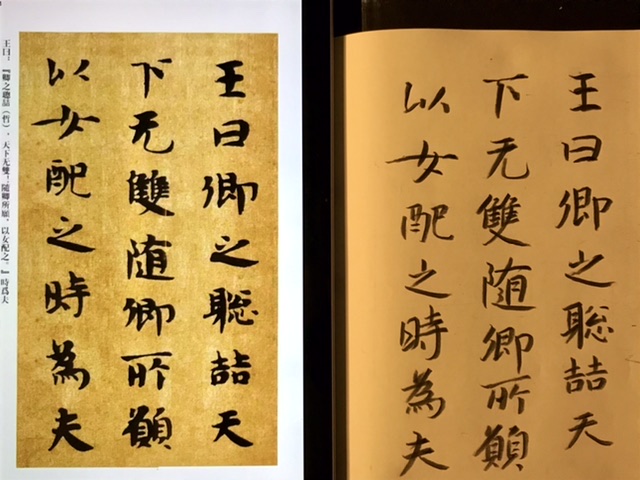 王曰卿之聡喆天
下无雙随卿所願
以女配之時為夫
王曰：『卿之聰喆（哲），天下无雙；隨卿所願，以女配之。』時爲夫
王曰卿之聡喆天
下无雙随卿所願
以女配之時為夫